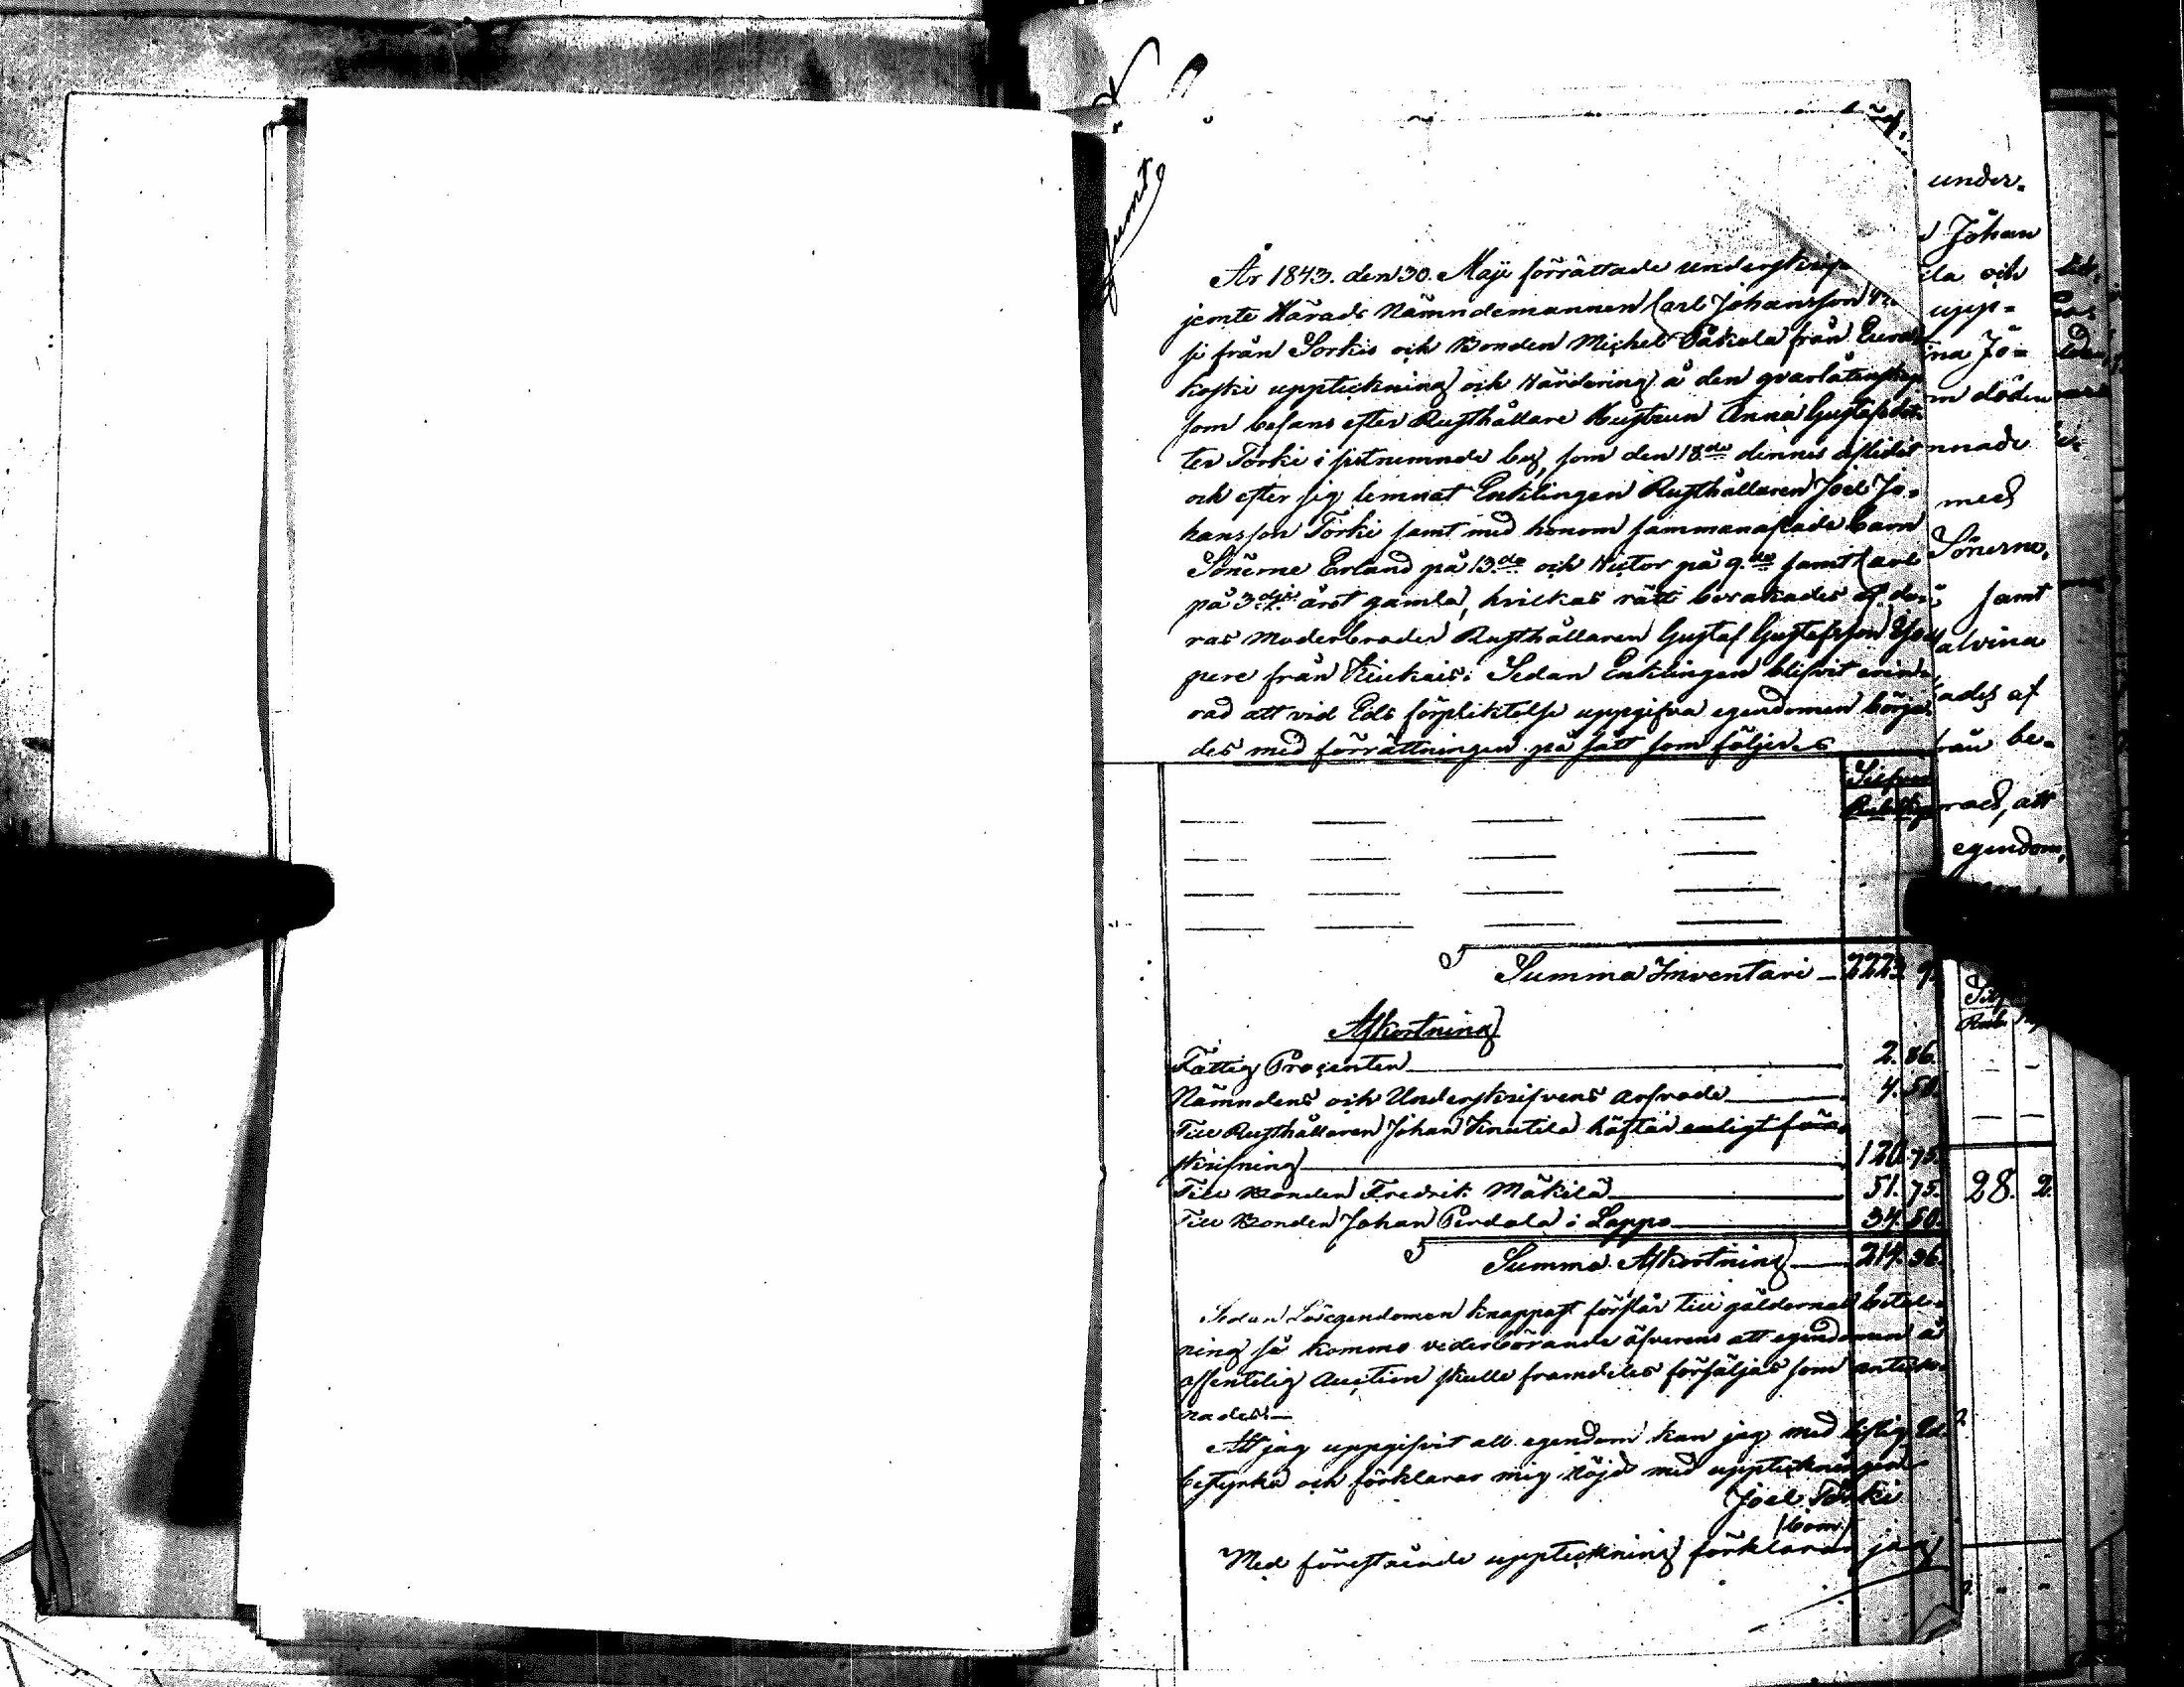 År 1843. den 30. Maji förrättade underskrif-
jemte Härads Nämndemannen Carl Johansson
si från Sorkis och Bonden Michel från Eura
koski uppteckning och Värdering å den qvarlåtenskap
som befans efter Rusthållare Hustrun Anna Gustafsdot-
ter Torki i sistnemnde by, som den 18de dennes aflidit
och efter sig lemnat Enklingen Rusthållaren Joel Jo-
hansson Torki samt med honom sammanaflade barn
Sönerne Erland på 13de och Victor på 9de samt Carl
på 3dje året gamla, hvilkas rätt bevakades af de-
ras Moderbroder Rusthållaren Gustaf Gustafsson
pere från Kiukais. Sedan Enklingen blifvit erin-
rad att vid Eds förpliktelse uppgifva egendomen börja-
des med förrättningen på sätt som följer
Silfver
Rub. Kop
Summa Inventari 2223. 9.
Afkortning
Fattig Procenten 2. 86.
Nämndens och Underskrifvens arfvode 4. 50.
Till Rusthållaren Johan Knutila häftar enligt för-
skrifning 120. 75.
Till Bonden Fredrik Mäkilä 51. 75.
Till Bonden Johan Perdala i Lappo 34. 50.
Summa Afkortning 214. 36.
Sedan Lösegendomen knappast förslår till gäldernas betal-
ning så kommo vederbörande öfverens att egendomen å
offentelig Auction skulle framdeles försäljas som anteck-
nades.
Att jag uppgifvit all egendom kan jag med liflig Ed
bestyrka och förklarar mig nöjd med uppteckningen
Joel Torki
(bom.)
Med förestående uppteckning förklarar jag
under-
Johan
ila och
upp-
ina Jo-
m döden
nnade
med
Sönerne,
samt
alvina
ades af
från be-
rad, att
egendom,
Rub.
28. 2.